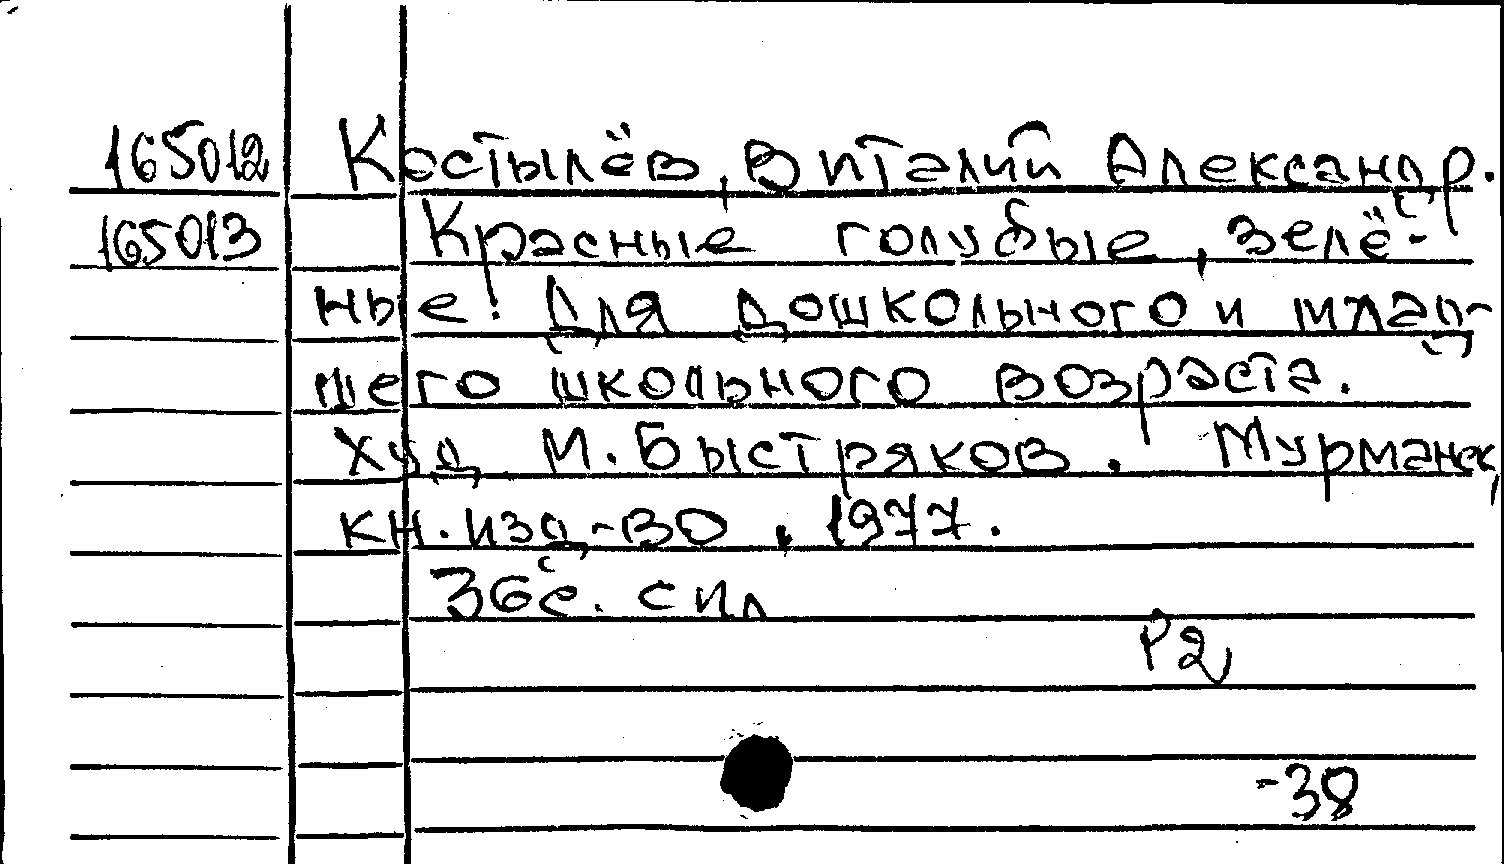 165012 Костылёв, Виталий Александр.
165013 Красные голубые, зелё-
ные! Для дошкольного и млад-
шего школьного возраста.
Худ М. Быстряков. Мурманск,
кн. изд-во, 1977.
36 с. с ил
Р2
-38